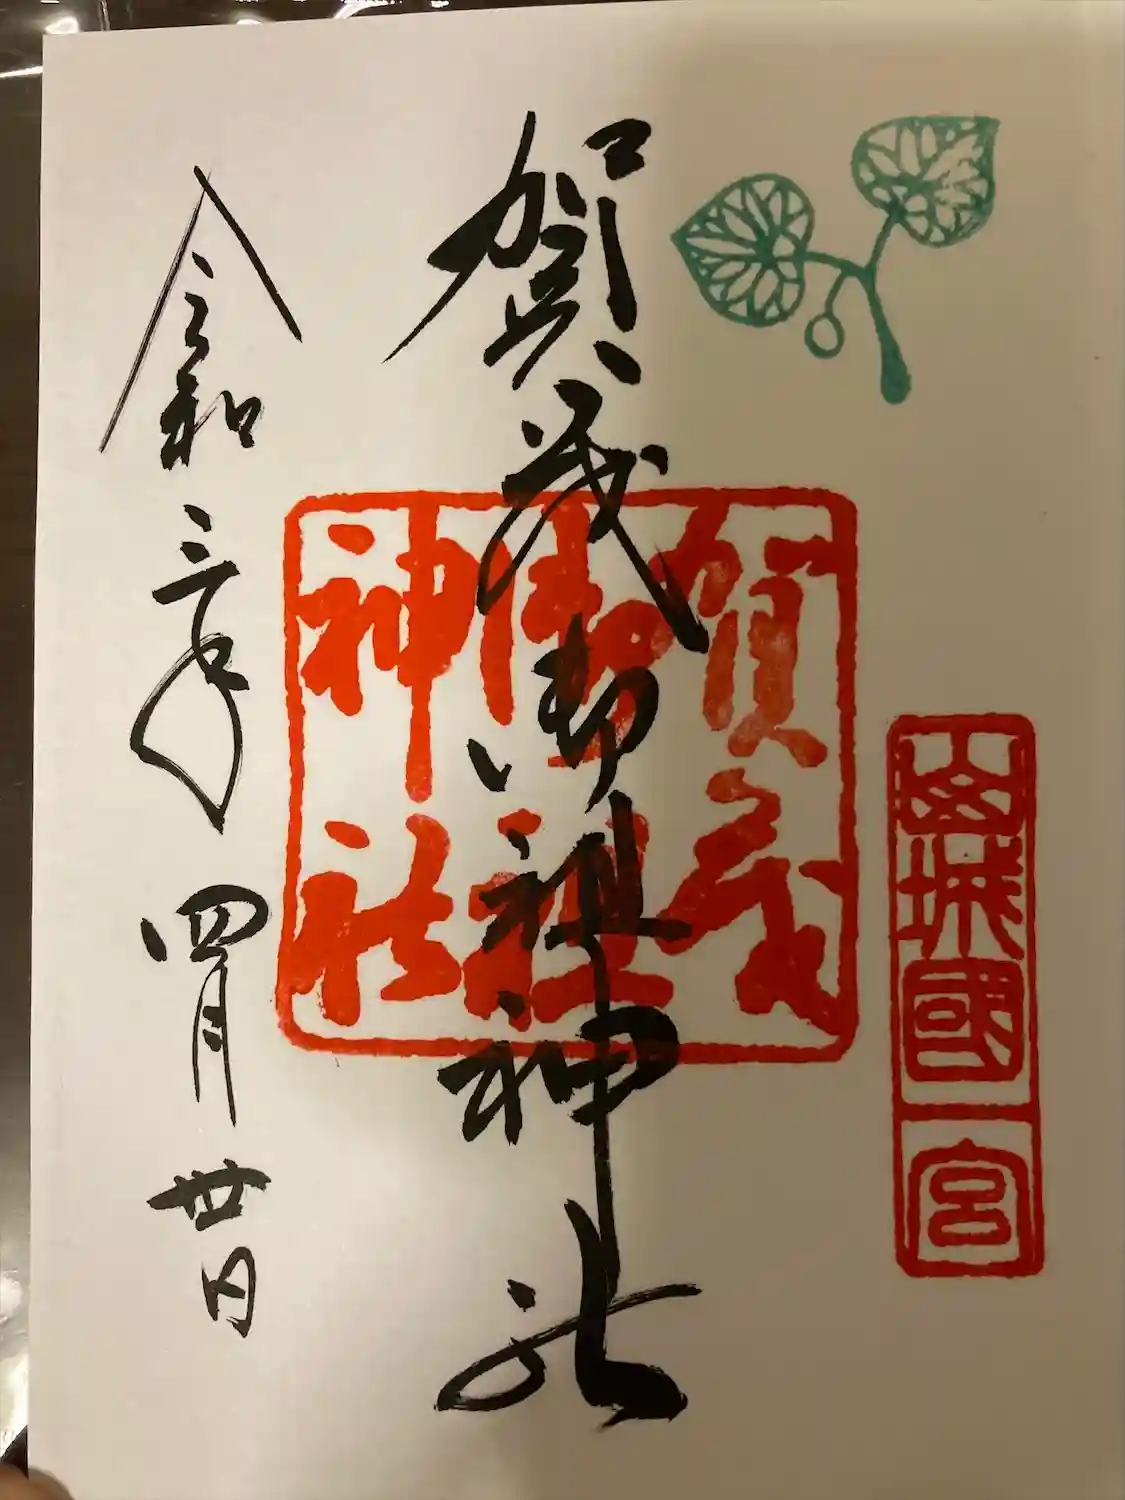 山城國一宮
賀茂御祖神社
賀茂
御祖
神社
令和三年四月廿日